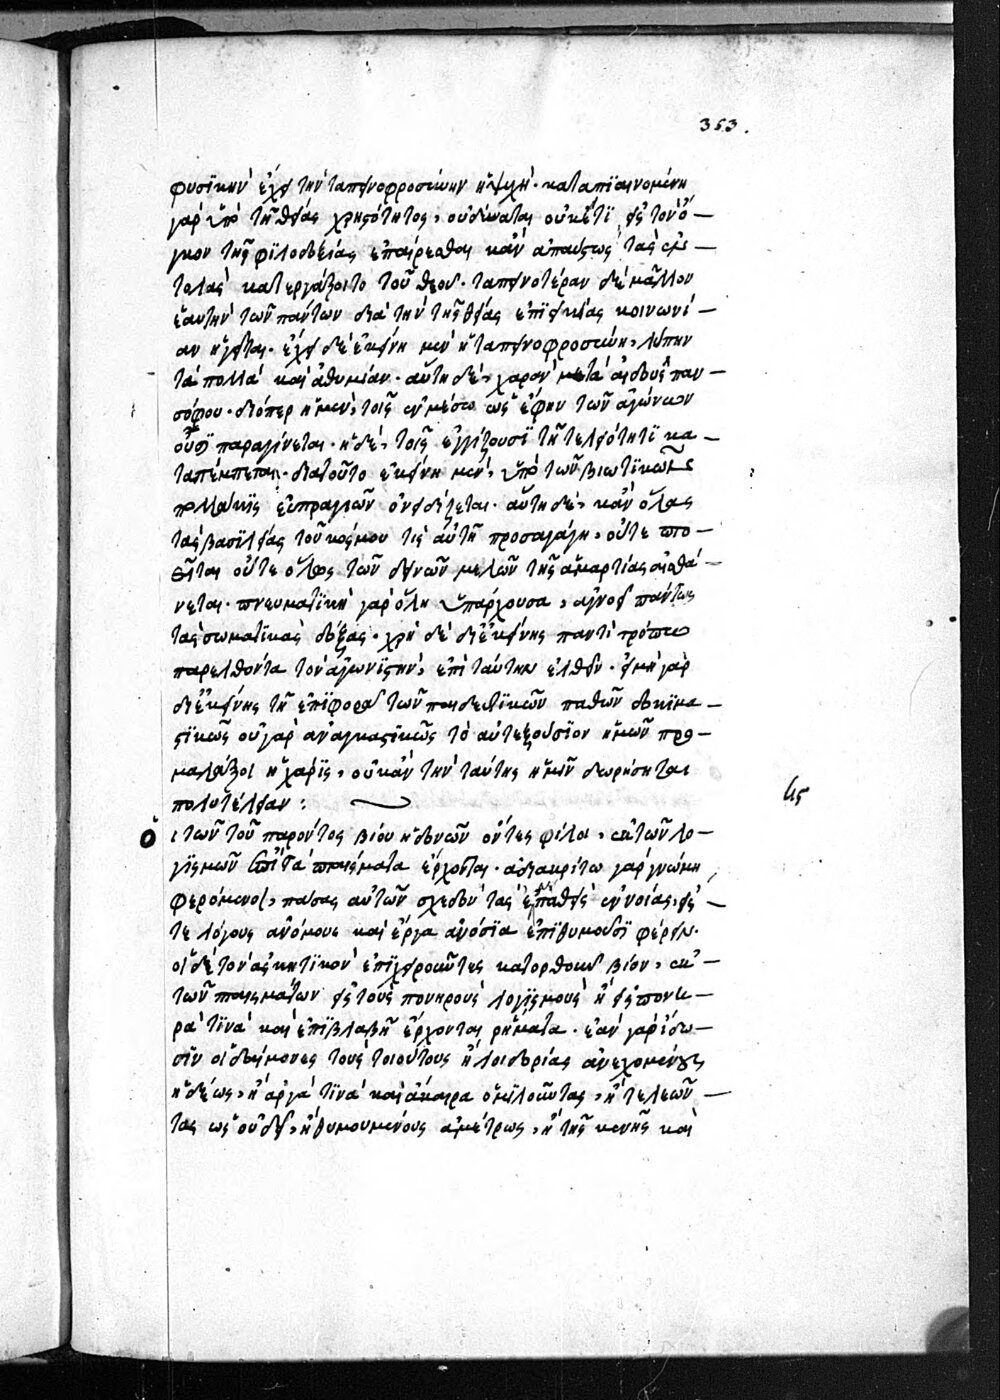 353.
φυσϊκὴν ἔχει τὴν ταπεινοφροσύνην ἡ ψυχή· καταπϊαινομένη
γὰρ ὑπὸ τῆς θείας χρηστότητος, οὐ δύναται οὐκέτϊ εἰς τὸν ὄ–
γκον τῆς φϊλοδοξίας ἐπαίρεσθαι κἂν ἀπαύστως τὰς ἐν–
τολὰς κατεργάζοιτο τοῦ θεοῦ· ταπεινοτέραν δὲ μᾶλλον
ἑαυτὴν τῶν πάντων διὰ τὴν τῆς θείας ἐπϊεικείας κοινωνί–
αν ἡγεῖται. ἔχει δὲ ἐκείνη μὲν ἡ ταπεινοφροσύνη, λύπην
τὰ πολλὰ καὶ ἀθυμίαν· αὕτη δὲ, χαρὰν μετὰ αἰδοῦς παν–
σόφου· διόπερ ἡ μὲν, τοῖς ἐν μέσω ὡς ἔφην τῶν ἀγώνων
οὖσϊ παραγίνεται· ἡ δὲ, τοῖς ἐγγίζουσϊ τῆ τελειότητϊ κα–
ταπέμπεται· διατοῦτο ἐκείνη μὲν, ὑπὸ τῶν βιωτϊκῶν
πολλάκϊς εὐπραγιῶν ὀνειδίζεται· αὕτη δὲ, κἂν ὅλας
τὰς βασϊλείας τοῦ κόσμου τὶς αὐτῆ προσαγάγη, οὔτε πτο–
εῖται οὔτε ὅλως τῶν δεινῶν βελῶν τῆς ἁμαρτίας αἰσθά–
νεται· πνευματϊκὴ γὰρ ὅλη ὑπάρχουσα, ἀγνοεῖ πάντως
τὰς σωματϊκὰς δόξας· χρὴ δὲ δι' ἐκείνης παντὶ τρόπω
παρελθόντα τὸν ἀγωνϊστὴν, ἐπὶ ταύτην ἐλθεῖν· εἰ μὴ γὰρ
δι' ἐκείνης τῆ ἐπϊφορᾶ τῶν παιδευτϊκῶν παθῶν δοκϊμα–
στϊκῶς οὐ γὰρ ἀναγκαστϊκῶς τὸ αὐτεξούσϊον ἡμῶν προ–
μαλάξοι ἡ χάρϊς, οὐκ ἂν τὴν ταύτης ἡμῖν δωρήσηται
πολυτέλειαν :
ὅ ι τῶν τοῦ παρόντος βίου ἡδονῶν ὄντες φίλοι, ἐκ τῶν λο–
γϊσμῶν ἐπὶ τὰ πταίσματα ἔρχονται· ἀδιακρίτω γὰρ γνώμη
φερόμενοι, πάσας αὐτῶν σχεδὸν τὰς ἐμπαθεῖς ἐννοίας, εἴς –
τε λόγους ἀνόμους καὶ ἔργα ἀνόσϊα ἐπϊθυμοῦσϊ φέρειν·
οἱ δὲ τὸν ἀσκητϊκὸν ἐπϊχειροῦντες κατορθοῦν βίον, ἐκ –
τῶν πταισμάτων εἰς τοὺς πονηροὺς λογϊσμοὺς ἢ εἰς πονη–
ρά τϊνα καὶ ἐπϊβλαβῆ ἔρχονται ῥήματα· ἐὰν γὰρ ἴδω–
σϊν οἱ δαίμονες τοὺς τοιούτους ἢ λοιδορίας ἀνεχομένους
ἡδέως, ἢ ἀργά τϊνα καὶ ἄκαιρα ὁμϊλοῦντας, ἢ γελῶν–
τας ὡς οὐ δεῖ, ἢ θυμουμένους ἀμέτρως, ἢ τῆς κενῆς καὶ